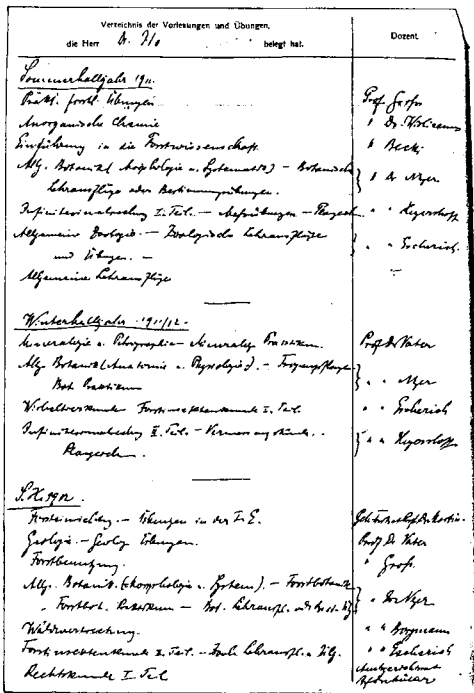 Verzeichnis der Vorlesungen und Übungen,
die Herr A. Ito belegt hat.
Dozent.
Sommerhalbjahr 1911.
Prakt. forstl. Übungen
Prof. Groß
Anorganische Chemie
" Dr.
Einführung in die Forstwissenschaft.
" Beck
Allg. Botanik (Morphologie u. Systematik) – Botanische
Lehrausflüge oder Bestimmungsübungen.
" Dr Neger
Infinitesimalrechng I. Teil. – Meßübungen – Plangeichn.
" "
Allgemeine Zoologie. – Zoologische Lehrausflüge
und Übungen. –
" " Escherich.
Allgemeine Lehrausflüge
Winterhalbjahr 1911/12.
Mineralogie u. Petrographie – Mineralog. Praktikum.
Prof. Dr Vater
Allg. Botanik (Anatomie u. Physiologie). –
Bot. Praktikum
" " Neger
Wirbeltierkunde Forstinsektenkunde I. Teil.
" " Escherich
Infinitesimalrechng II. Teil. – Vermessungskunde. .
" "
S. H. 1912.
Forsteinrichtg. – Übungen in der F. E.
Geologie. – Geolog. Übungen.
Prof. Dr. Vater
Forstbenutzung.
" Groß.
Allg. Botanik. (Morphologie u. System.). – Forstbotanik
" Forstbot. Praktikum – Bot. Lehrausfl.
" Dr. Neger
Waldwertrechnung.
" " Borgmann
Forstinsektenkunde II. Teil. – Zool. Lehrausfl. u. Übg.
" " Escherich
Rechtskunde I. Teil